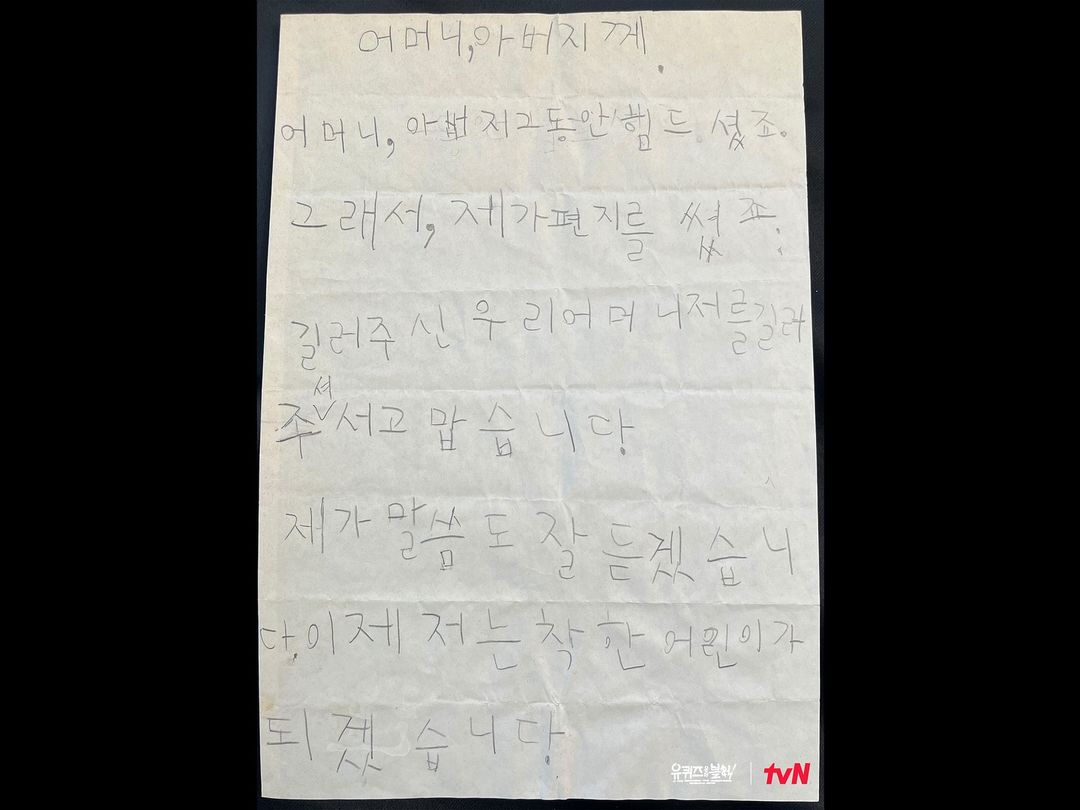 어머니,아버지께.
어머니, 아버저그동안 햄드셨죠.
그래서, 제가편지를 썼죠.
길러주신 우리어머니저를길러
주셔서고맙습니다
제가 말씀도 잘 듣겠습니
다.이제 저는 착한 어린이가
되겠습니다.
유퀴즈온더블럭!
tvN